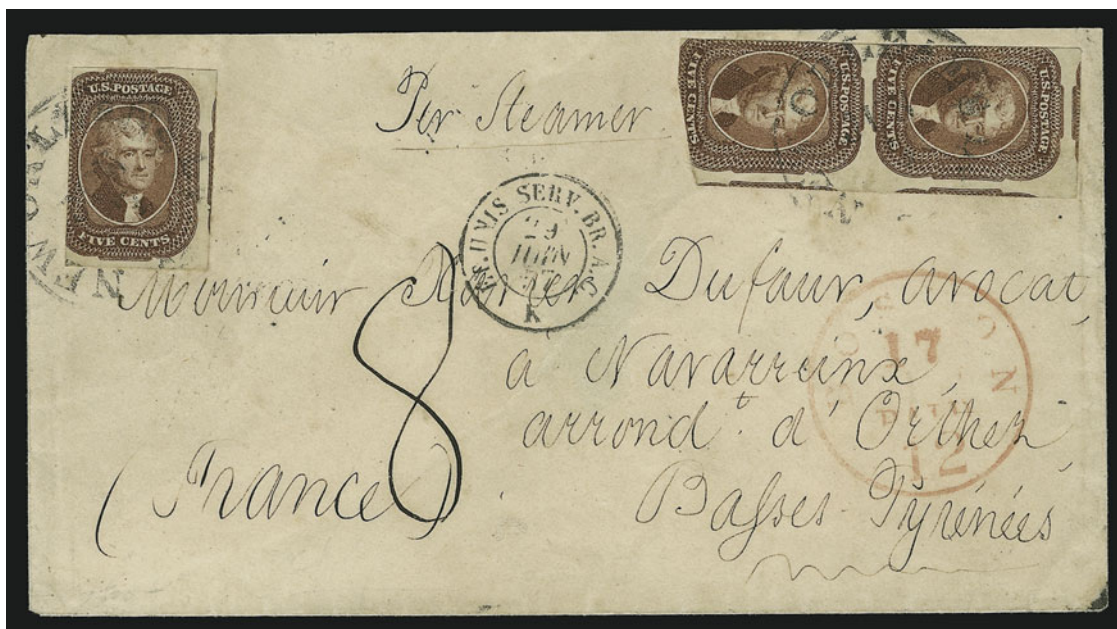 U.S. POSTAGE
FIVE CENTS
U.S. POSTAGE
FIVE CENTS
U.S. POSTAGE
FIVE CENTS
Per Steamer
NEW
SERV. BR. A.C.
29
JUIN
57
K
Monsieur Dufaur, avocat,
à Navarreinx,
arrond.t d'Orthez,
Basses Pyrénées
(France)
8
BOSTON
17
PAID
12